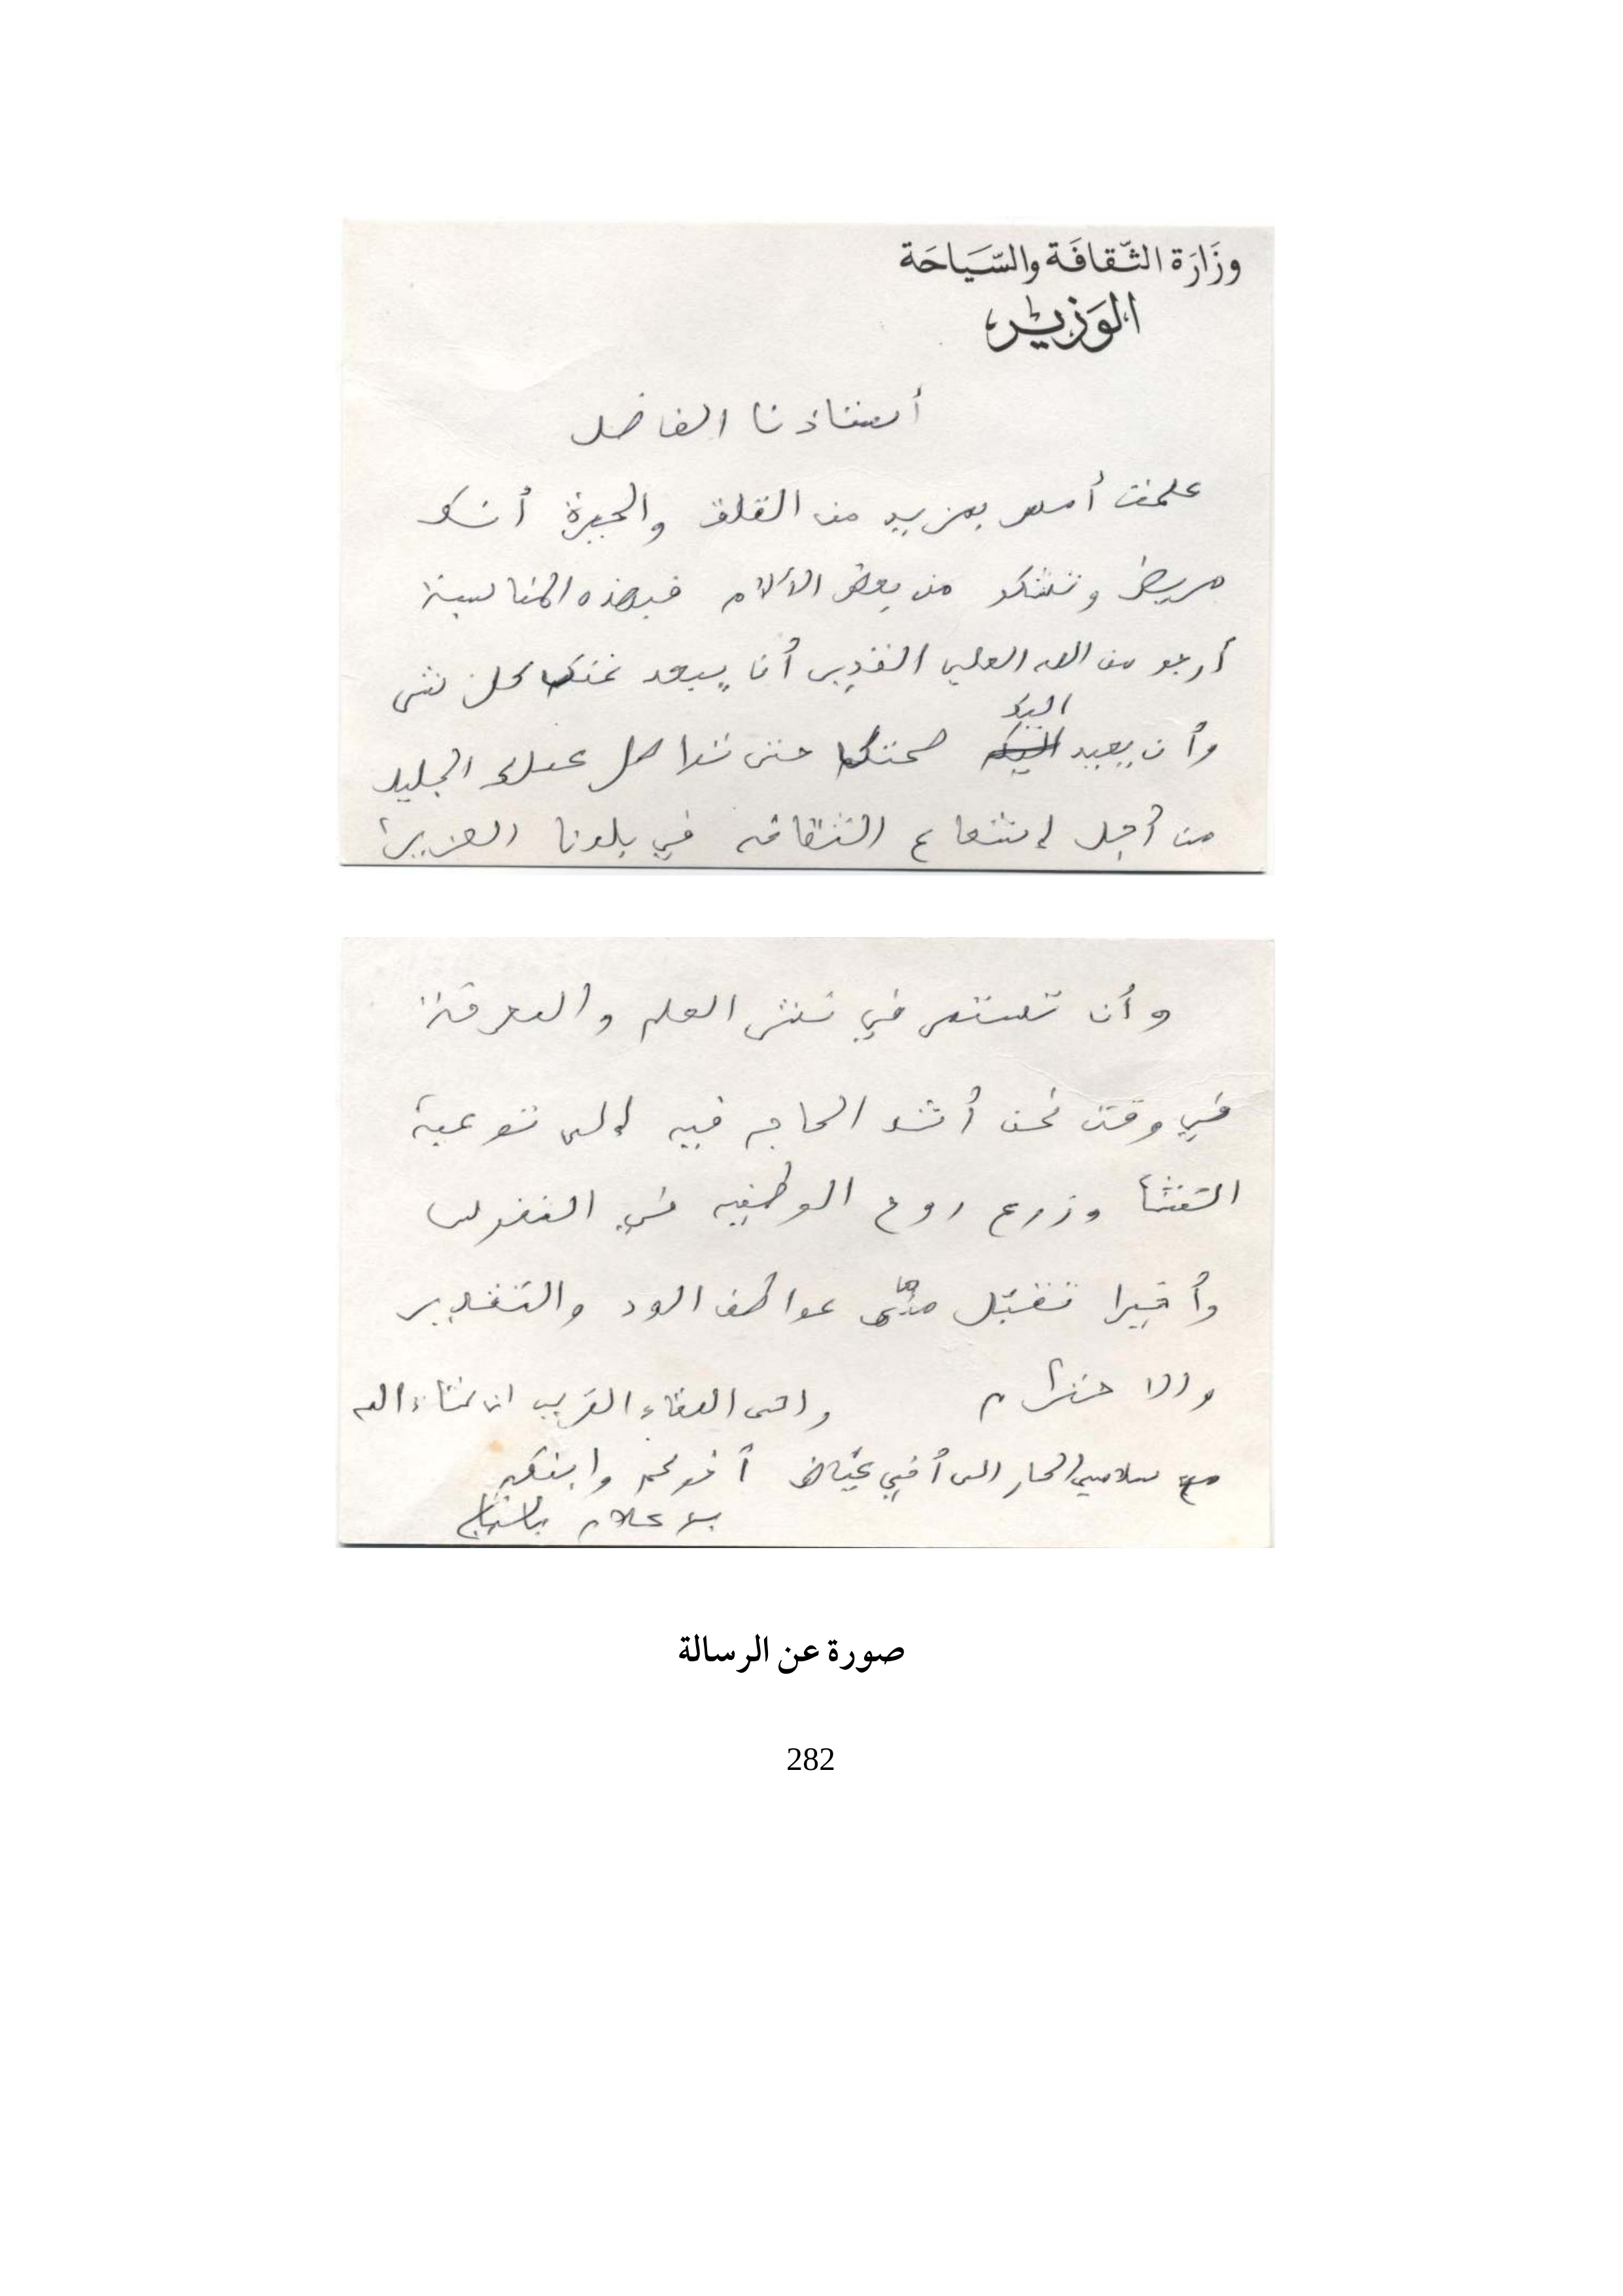 وزَارَة الثّقافَة والسّيَاحَة
الوَزير
أستاذنا الفاضل
علمت أمس بمزيد من القلق والحيرة أنك
مريض وتشكو من بعض الألام فبهذه المناسبة
أرجو من الله العلي القدير أن يبعد عنك كل شر
وأن يعيد اليك صحتك حتى تواصل عملك الجليل
من أجل إشعاع الثقافة في بلدنا العزيز
وأن تستمر في نشر العلم والمعرفة
في وقت نحن أشد الحاجة فيه إلى توعية
النشأ وزرع روح الوطنية في النفوس
وأخيرا تقبّل منّي عواطف الود والتقدير
والاحترام والى اللقاء القريب ان شاء الله
مع سلامي الحار الى أخي عياض أخوكم وابنكم
بو علام
صورة عن الرسالة
282